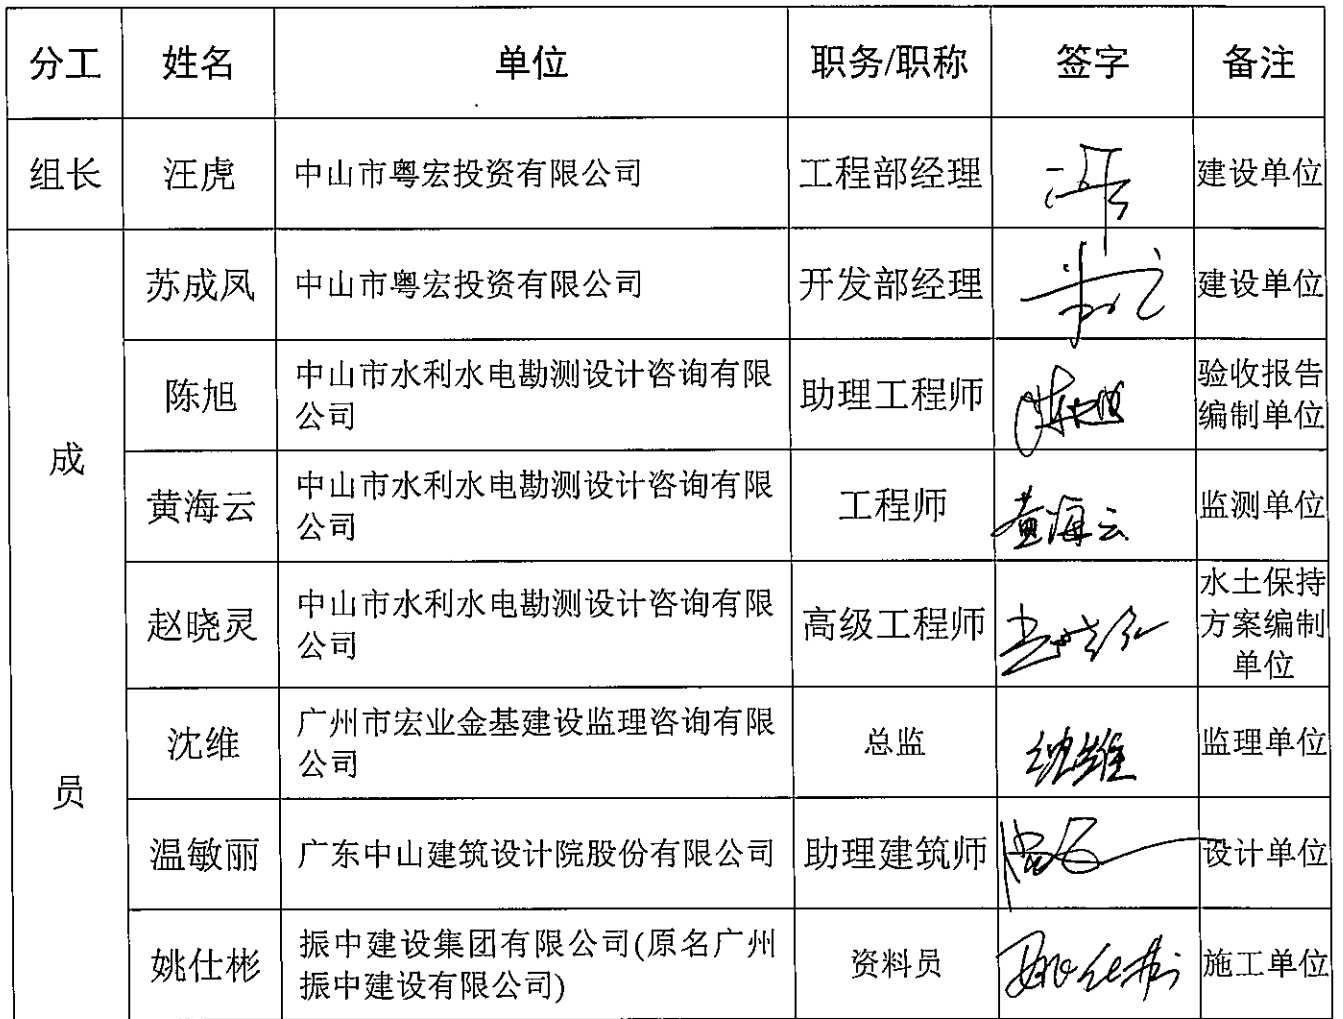 分工 姓名 单位 职务/职称 签字 备注
组长 汪虎 中山市粤宏投资有限公司 工程部经理 建设单位
成
员
苏成凤 中山市粤宏投资有限公司 开发部经理 建设单位
陈旭 中山市水利水电勘测设计咨询有限
公司 助理工程师 陈旭 验收报告
编制单位
黄海云 中山市水利水电勘测设计咨询有限
公司 工程师 黄海云 监测单位
赵晓灵 中山市水利水电勘测设计咨询有限
公司 高级工程师 水土保持
方案编制
单位
沈维 广州市宏业金基建设监理咨询有限
公司 总监 沈维 监理单位
温敏丽 广东中山建筑设计院股份有限公司 助理建筑师 设计单位
姚仕彬 振中建设集团有限公司(原名广州
振中建设有限公司) 资料员 姚仕彬 施工单位